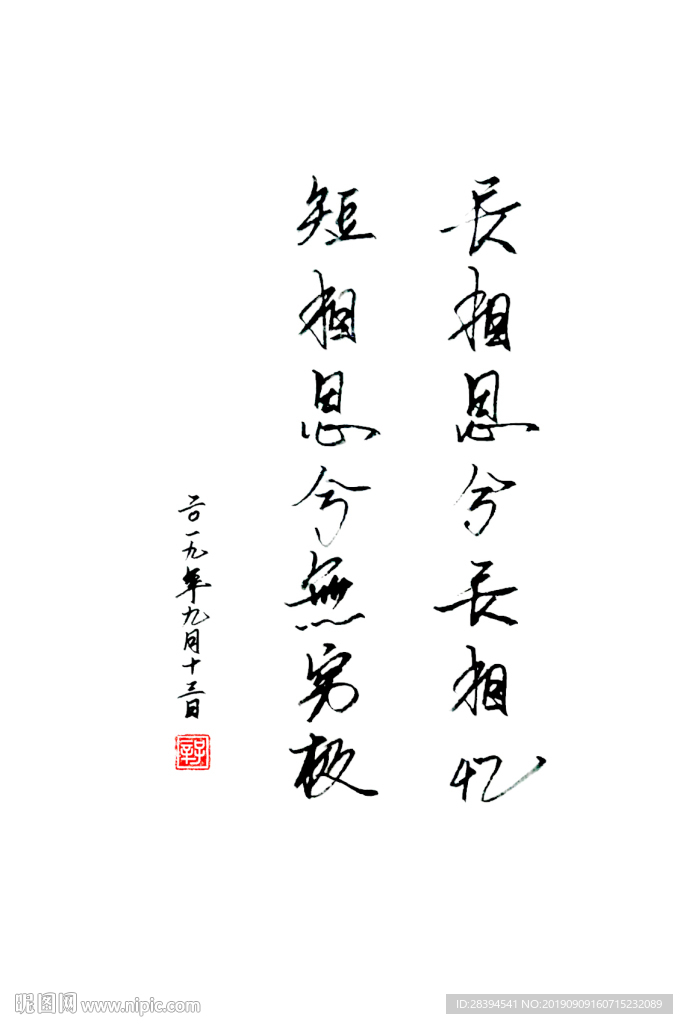 長相思兮長相忆
短相思兮無穷極
二〇一九年九月十三日
昵图网 www.nipic.com
ID:28394541 NO:20190909160715232089